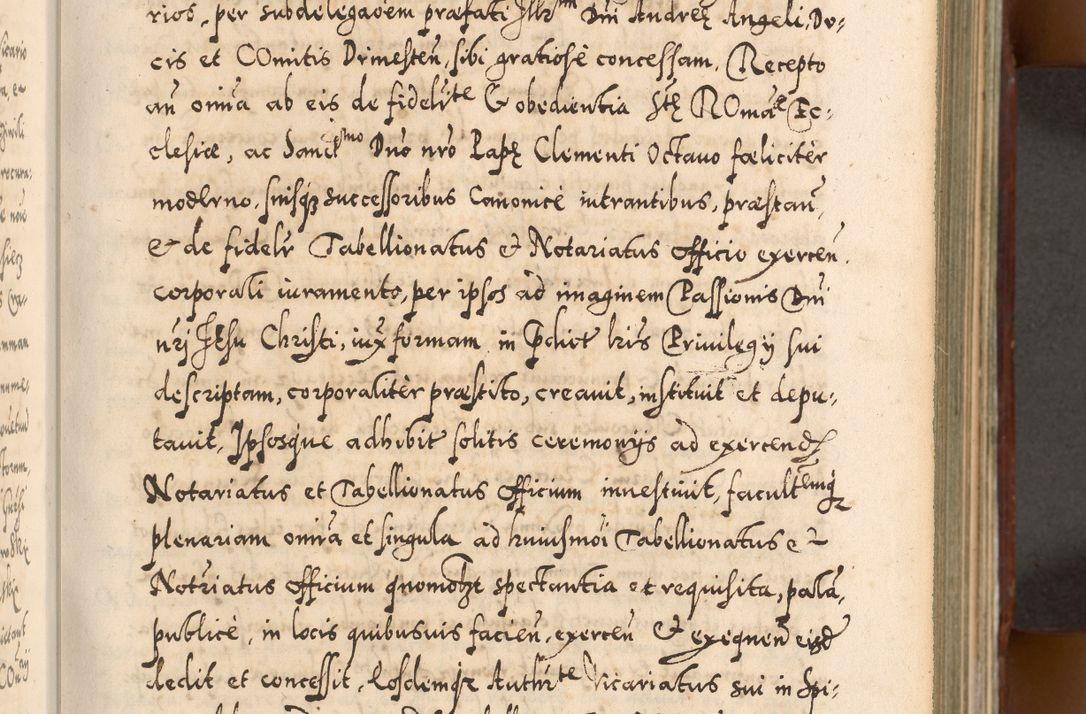 rios, per subdelegaoem præfati Illr mi Dni Andreæ Angeli, Du-
cis et COmitis Drinesten, sibi gratiosè concessam, Recepto
an omnia ab eis de fidelit te & obedientia Stę ROmæ Ec-
clesiæ, ac Sanct mo Dno nro Papę Clementi Octauo fœliciter
moderno, suisq3 successoribus Canonicè intrantibus, præstan,
& de fidelr Tabellionatus & Notariatus Officio exercen.
corporali iuramento, per ipsos ad imaginem Passionis Dni
nrj Jesu Christi, iux formam in Pdict lris Priuilegij sui
descriptam, corporalitèr præstito, creauit, instituit et depu-
tauit, Ipsosque adhibit solitis ceremonijs ad exercend
Notariatus et Tabellionatus Officium inuestiuit, facult emq
plenariam omnia et singula ad huiusmoi Tabellionatus et
Notriatus Officium quomolt spectantia et requisita, palã,
publicè, in locis quibusuis facien, exercen & exequen eisd
dedit et concessit, Eosdemqz Authrt te Vicariatus sui in Spi-